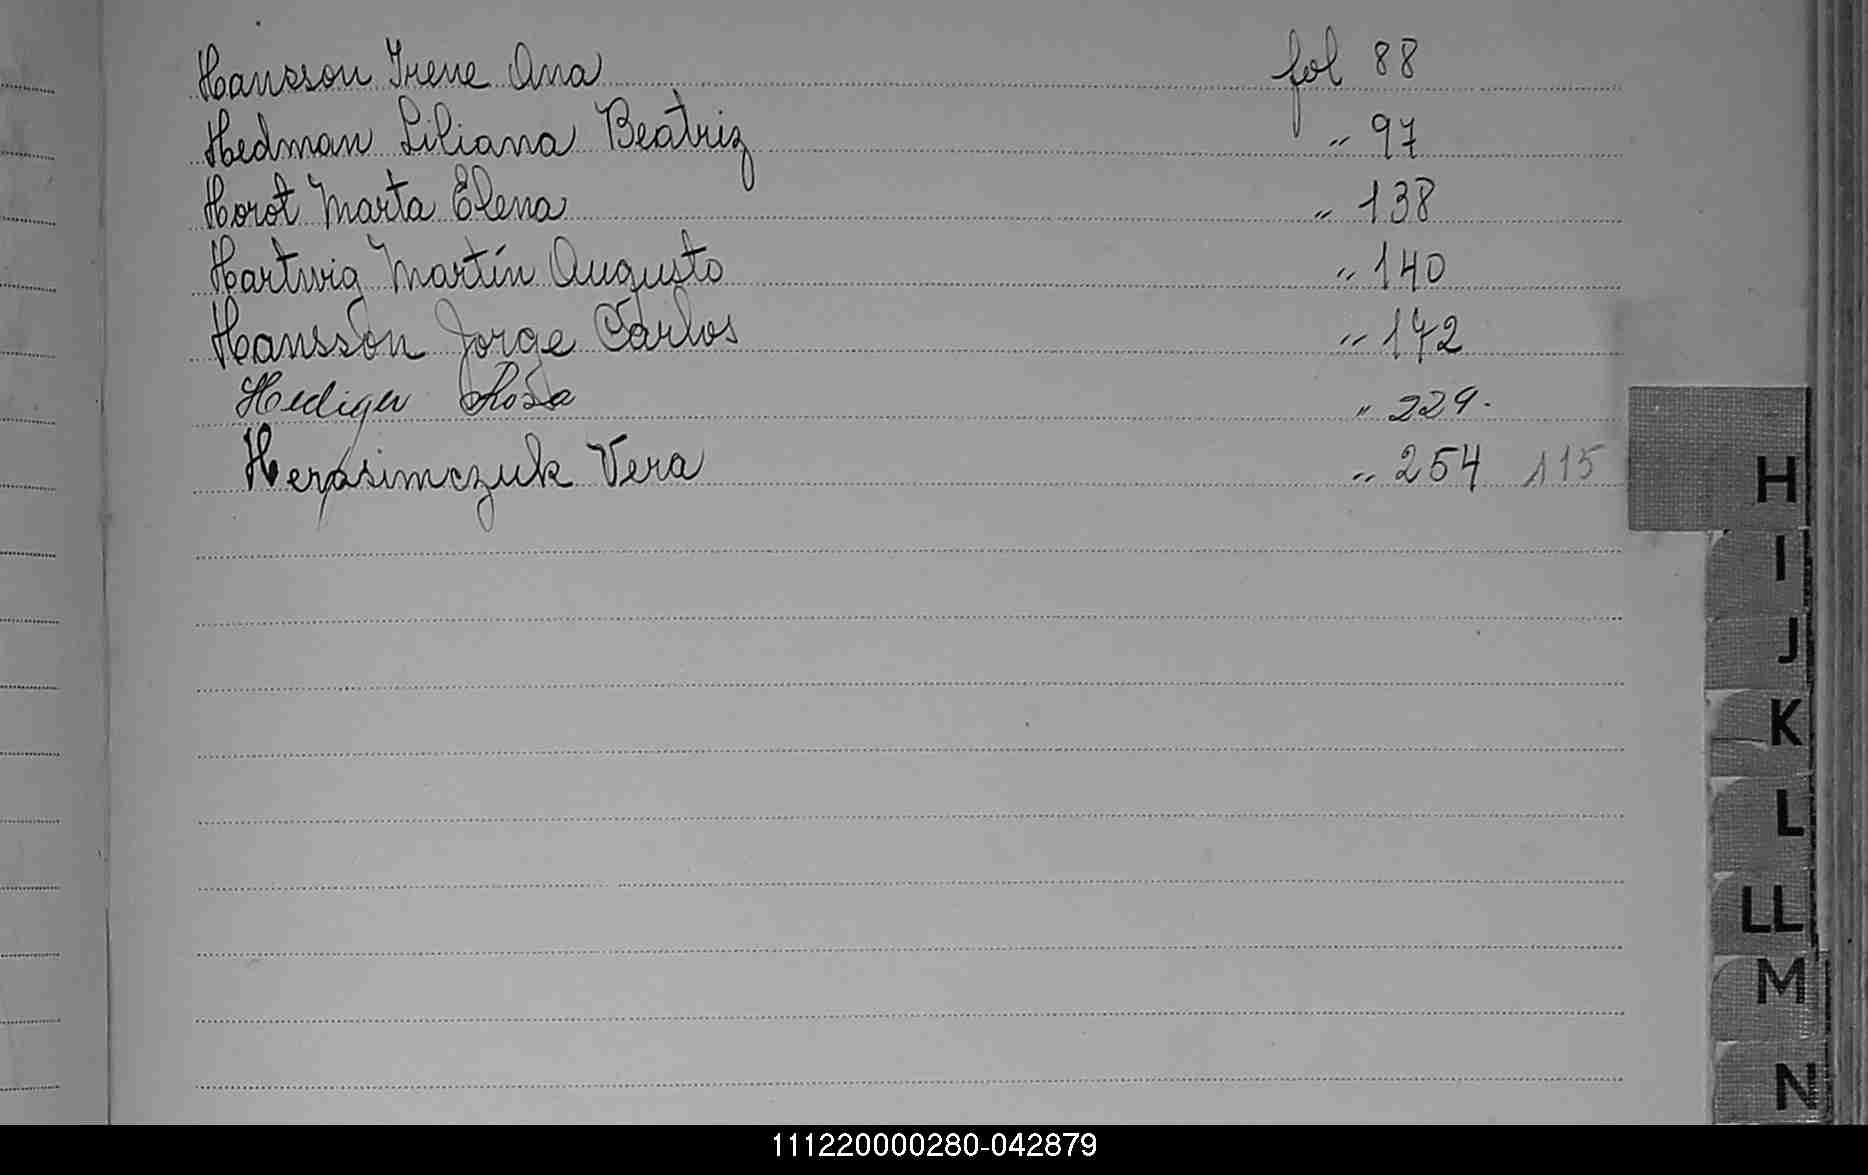 Hansson Irene Ana fol 88
Hedman Liliana Beatriz " 97
Horot Marta Elena " 138
Hartwig Martín Augusto " 140
Hansson Jorge Carlos " 172
Hediger Rosa " 229.
Herasimczuk Vera " 254 115
H
I
J
K
L
LL
M
N
111220000280-042879